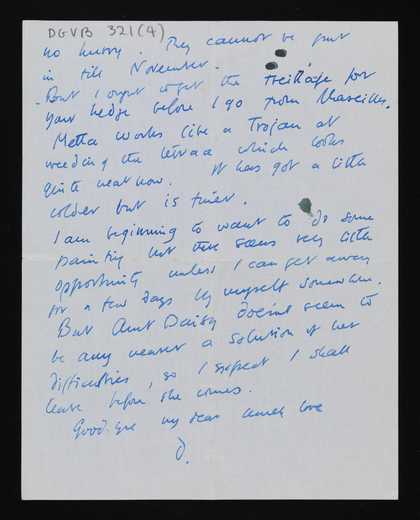 DGVB 321(4)
no hurry. They cannot be put
in till November.
But I ought to get the treillage for
your hedge before I go from Marseilles.
Metta works like a Trojan at
weeding the terrace which looks
quite neat now. It has got a little
colder but is finer.
I am beginning to want to do some
painting but there seems very little
opportunity unless I can get away
for a few days by myself somewhere.
But Aunt Daisy doesnt seem to
be any nearer a solution of her
difficulties, so I expect I shall
leave before she comes.
Good bye my dear much love
D.